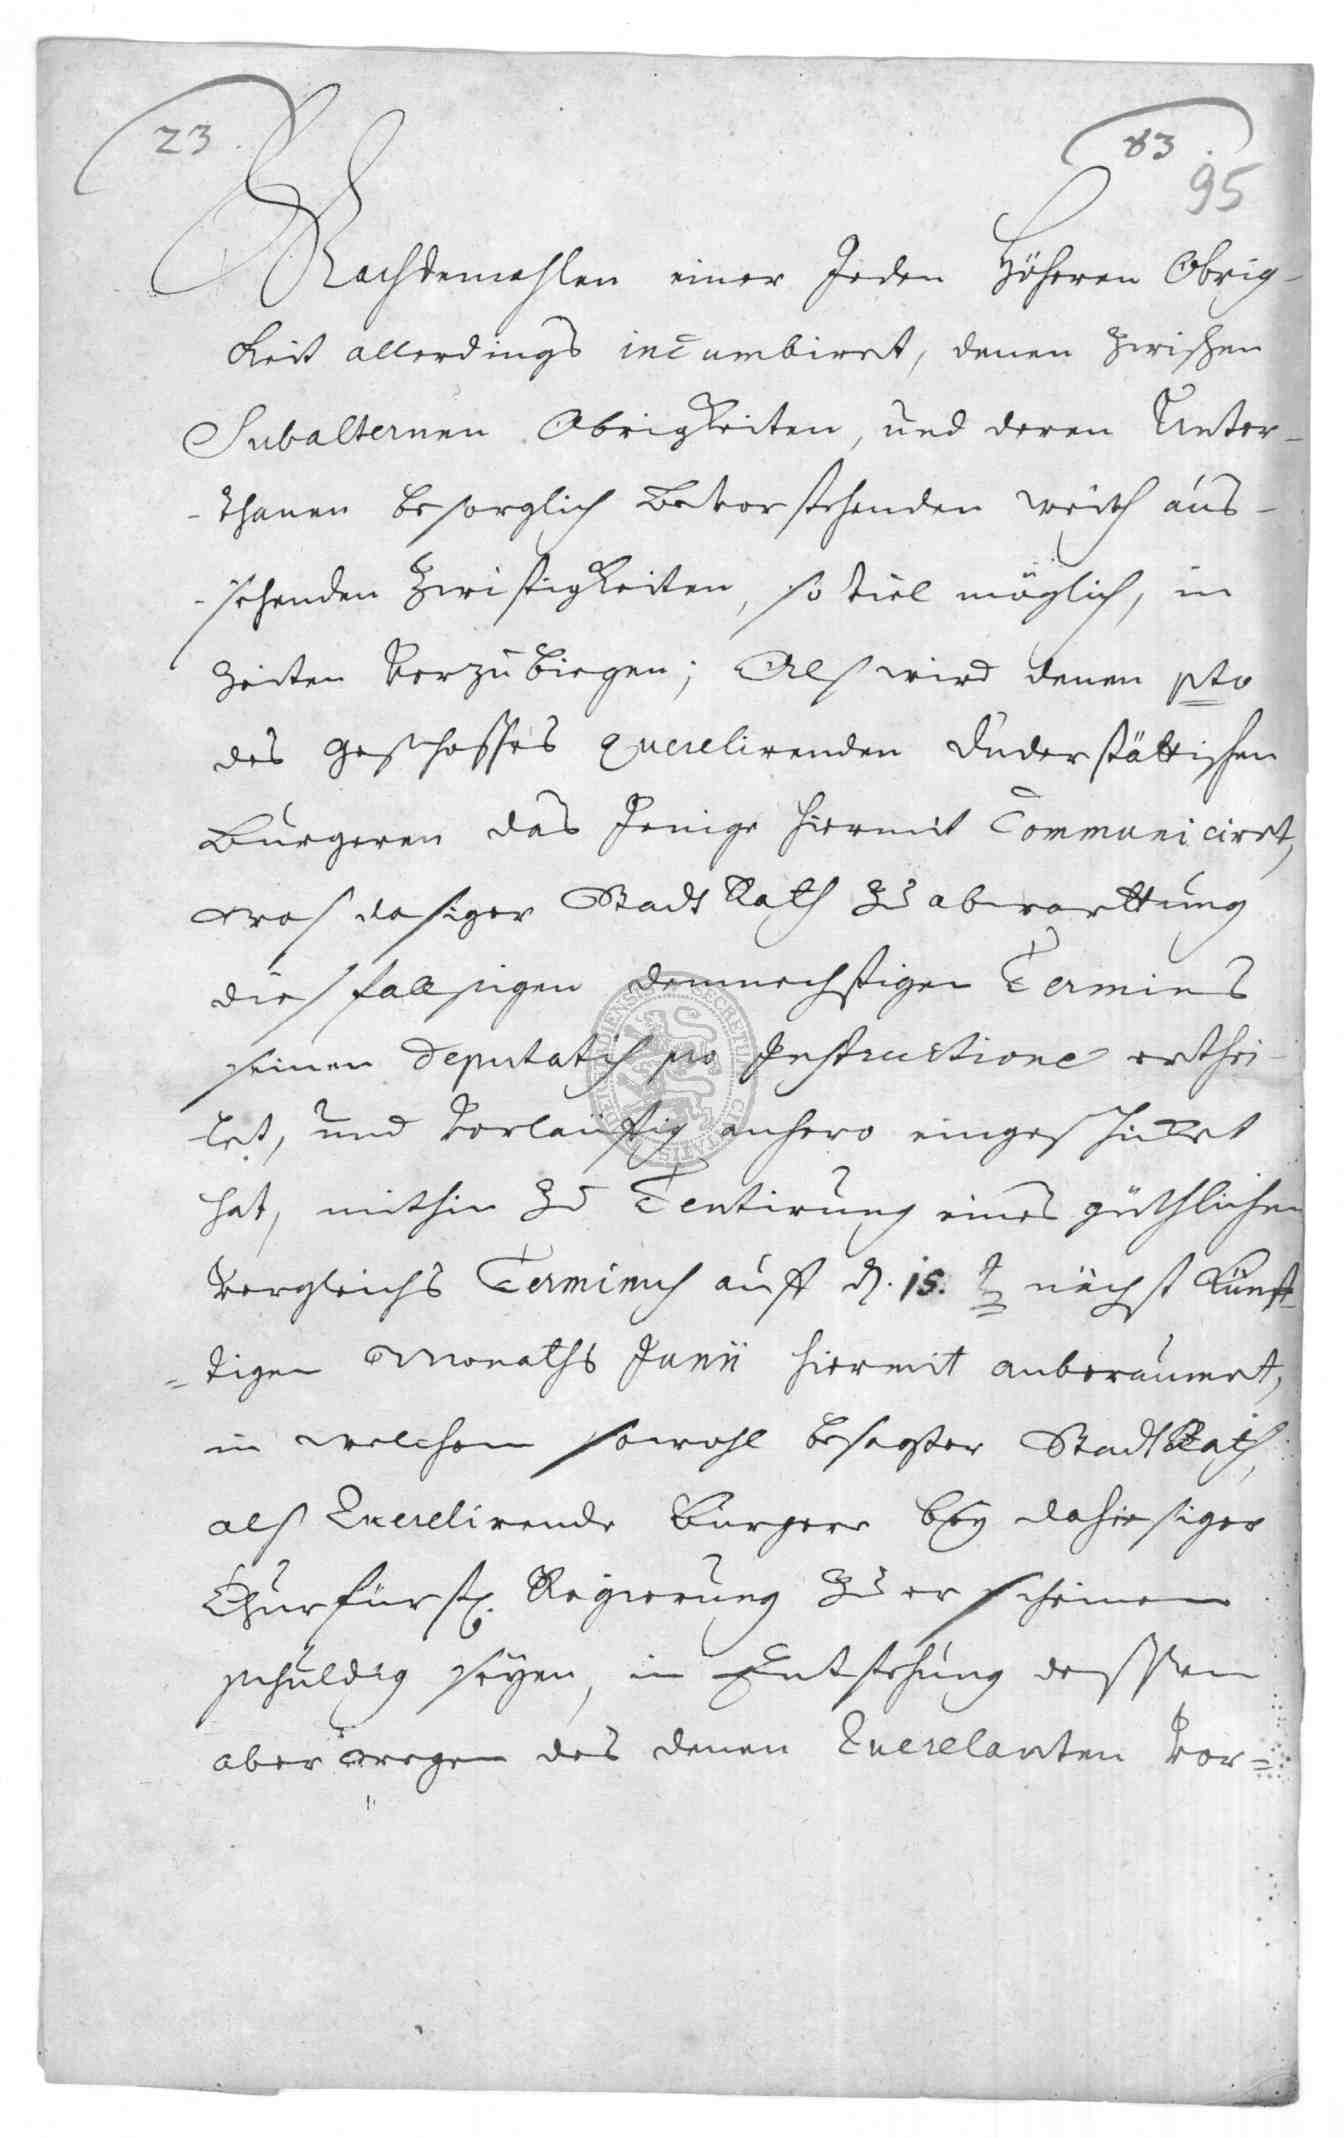 23
83
95
Nachdemahlen einer Jeden Höheren Obrig-
keit allerdings incumbiret, denen zwischen
Subalternen Obrigkeiten, und deren Unter-
-thanen besorglich bevorstehenden weith aus-
-sehenden Zwistigkeiten, so viel möglich, in
Zeiten vorzubiegen; Alß wird denen pto
des geschosses querelirenden Duderstättischen
Burgeren das Jenige hiermit Communiciret,
waß dasiger Stadt Rath zu abwarttung
dießfallsigen demnechstigen Termins
seinen Deputatis pro Instructione erthei-
let, und vorläuffig anhero eingeschicket
hat, mithin zu Tentirung eines güthlichen
Vergleichs Terminus auff d. 15. nächst Künff-
=tigen Monaths Junii hiermit anberaumet,
in welchem sowohl besagter Stadt Rath,
alß Querelirende Bürgere bey dahiesiger
Churfürstl. Regierung zu erscheinen
schuldig seyen, in Entstehung dessen
aber wegen des denen Querelanten vor=